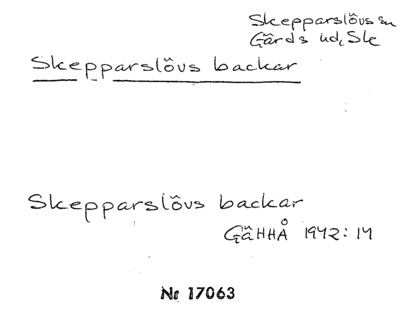 Skepparslövs sn
Gärds hd, Sk
Skepparslövs backar
Skepparslövs backar
GäHHÅ 1942: 14
Nr 17063